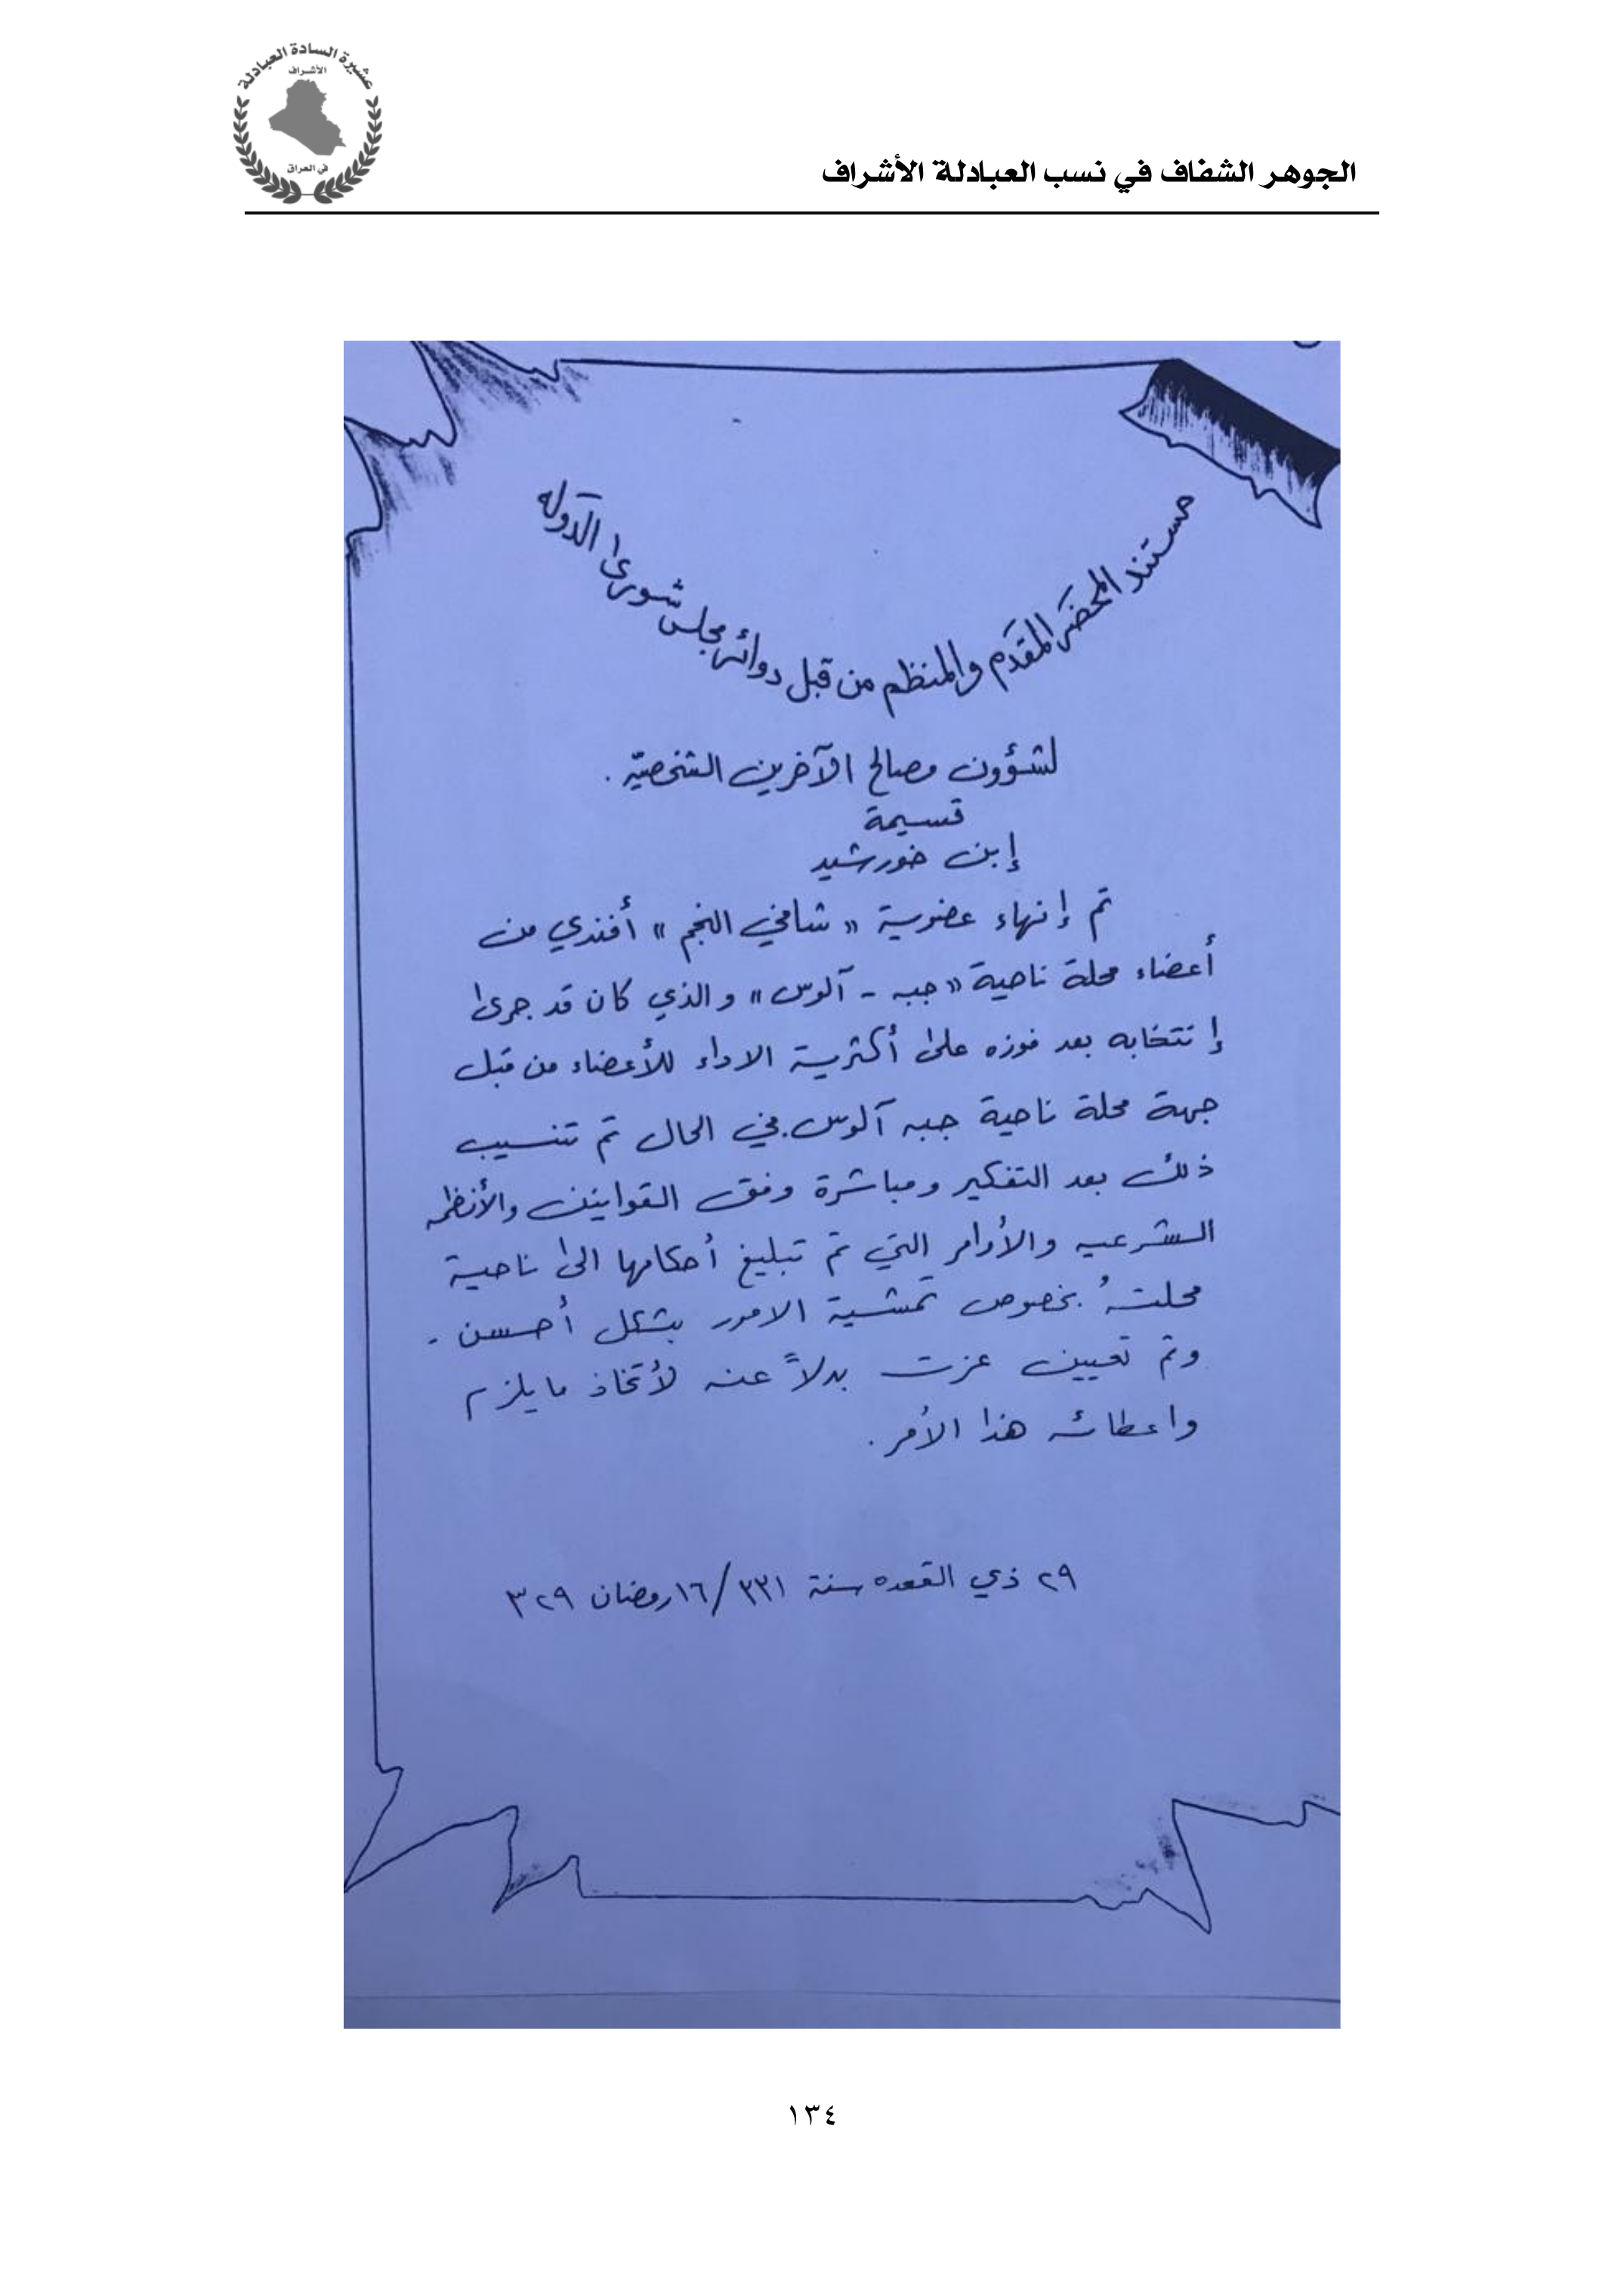 عشيرة السادة العبادلة
الأشراف
في العراق
الجوهر الشفاف في نسب العبادلة الأشراف
مستند المحضَر المقدَم والمنظم من قبل دوائر مجلس شورىٰ الدوله
لشؤون مصالح الآخرين الشخصيّه .
قسيمة
إبن خورشيد
تم إنهاء عضوية « شافي النجم » أفندي من
أعضاء محلة ناحية « جبه - آلوس » والذي كان قد جرىٰ
إنتخابه بعد فوزه علىٰ أكثرية الاداء للأعضاء من قبل
جهة محلة ناحية جبه آلوس. في الحال تم تنسيب
ذلك بعد التفكير ومباشرة وفق القوانين والأنظمه
الشرعيه والأوامر التي تم تبليغ أحكامها الىٰ ناحية
محلتهُ بخصوص تمشية الامور بشكل أحسن .
وتم تعيين عزت بدلاً عنه لأتخاذ مايلزم
واعطائه هذا الأمر .
٢٩ ذي القعده سنة ٣٣١ / ١٦ رمضان ٣٢٩
١٣٤